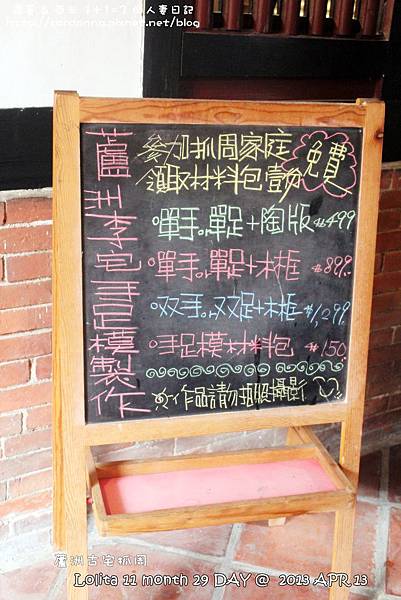 http://cardonna.pixnet.net/blog
蘆洲李宅手足模製作
參加抓周家庭
領取材料包壹份
免費
單手。單足+陶版 $499
單手。單足+木框 $899.
双手。双足+木框 $1,299.
手足模材料包 $150.
作品請勿拍照攝影
蘆洲古宅抓周
Lolita 11 month 29 DAY @ 2013 APR.13